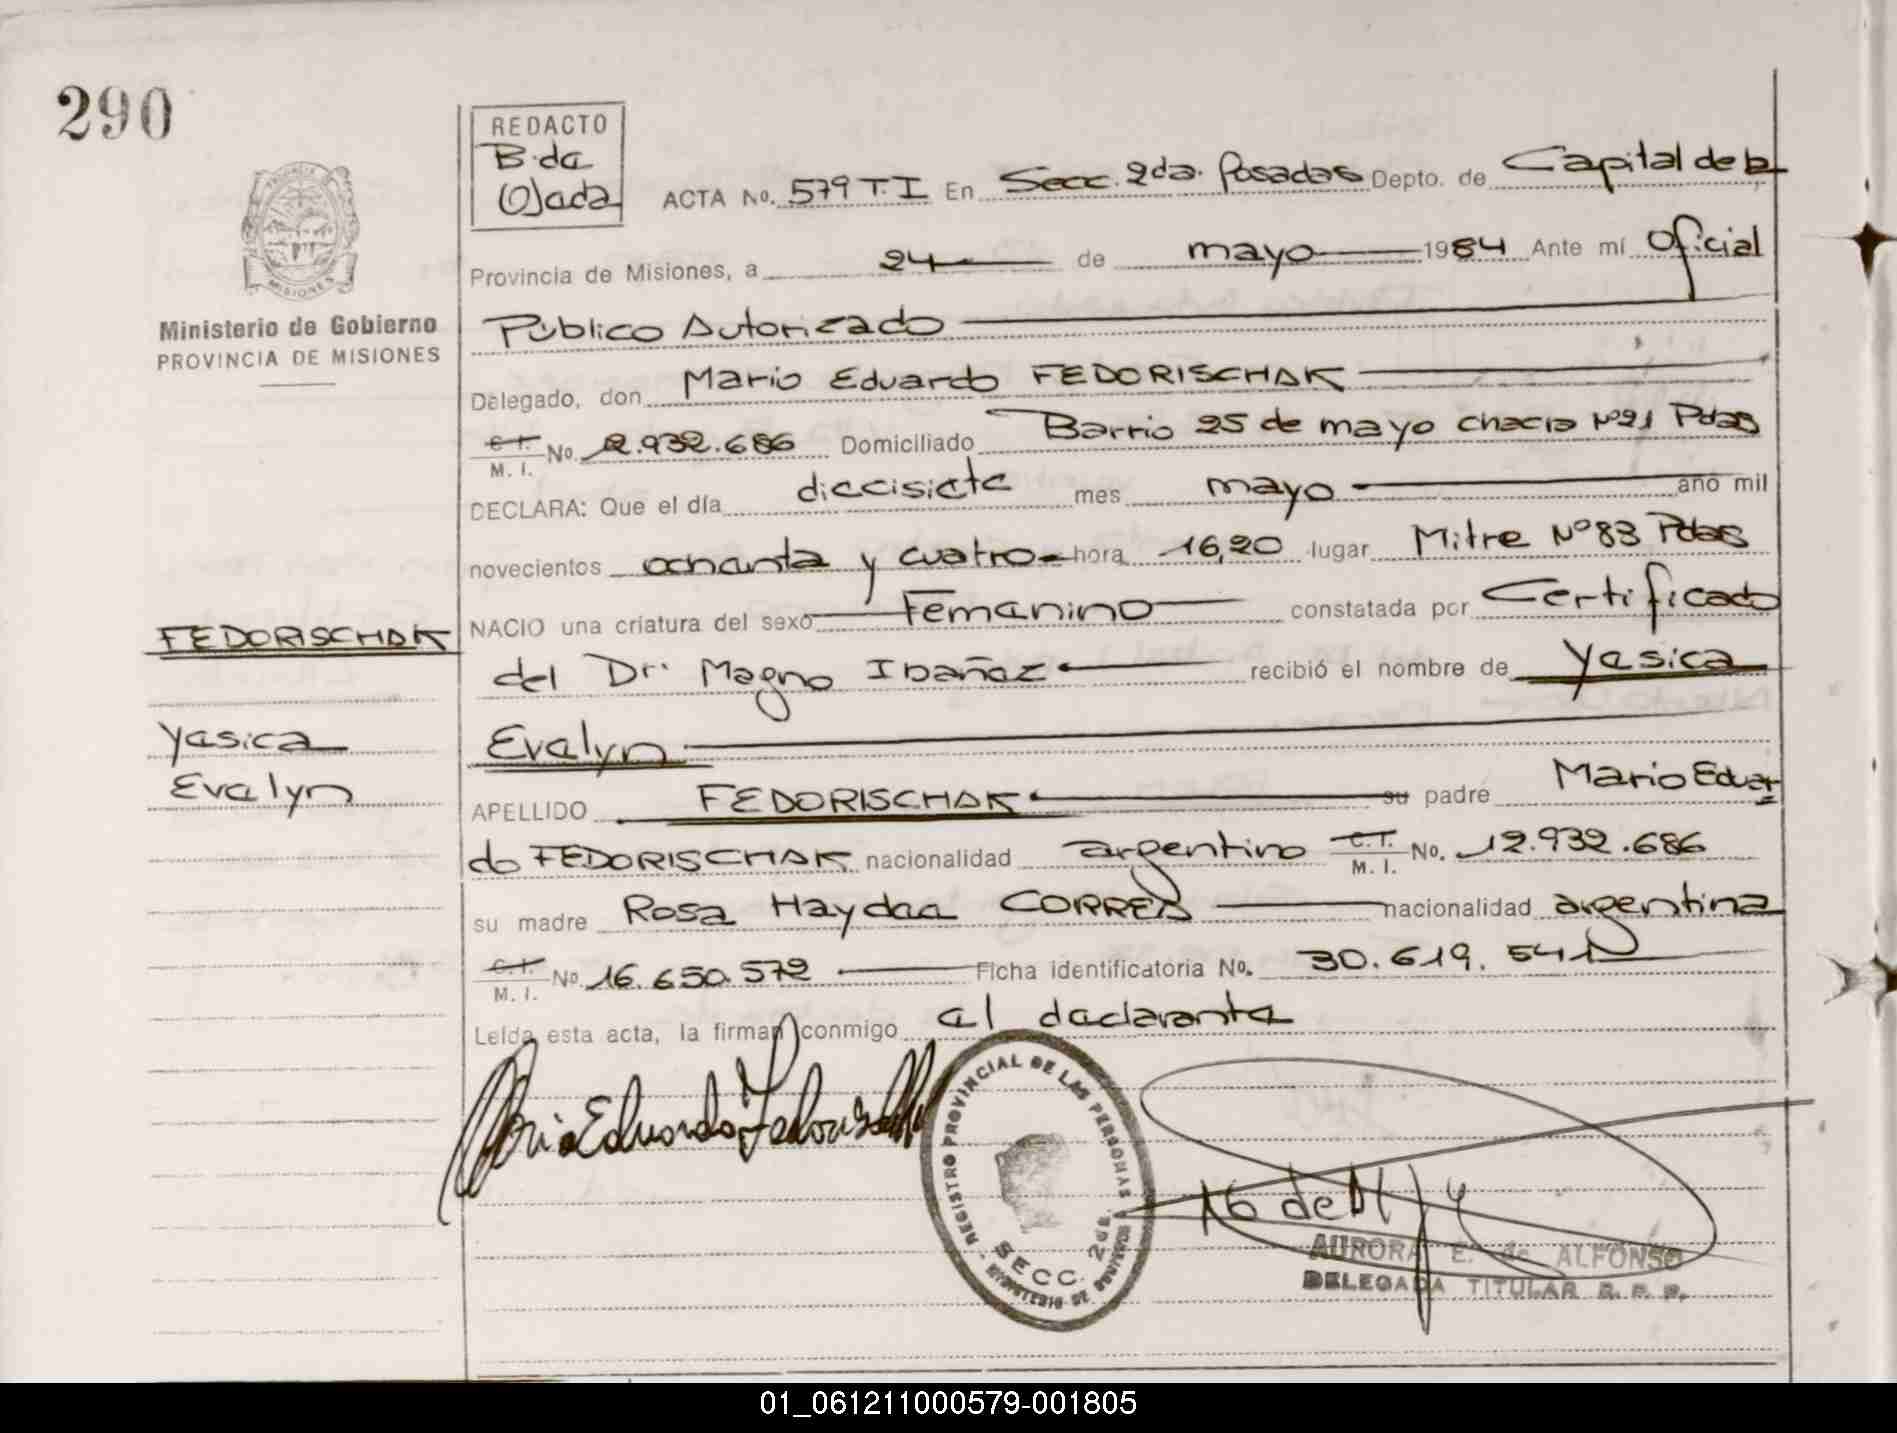 290
REDACTO
B. de
Ojeda
ACTA No. 579 T. I En Secc. 2da. Posadas Depto. de Capital de la
Provincia de Misiones, a 24 de mayo 1984 Ante mí Oficial
Ministerio de Gobierno
PROVINCIA DE MISIONES
Público Autorizado
Delegado, don Mario Eduardo FEDORISCHAK
C.I. M. I. No. 12.932.686 Domiciliado Barrio 25 de mayo chacra Nº21 Pdas
DECLARA: Que el día diecisiete mes mayo año mil
novecientos ochenta y cuatro hora 16,20 lugar Mitre Nº 83 Pdas
NACIO una criatura del sexo Femenino constatada por Certificado
FEDORISCHAK
del Dr. Magno Ibañez recibió el nombre de Yesica
Yesica
Evelyn
Evelyn
APELLIDO FEDORISCHAK su padre Mario Eduar
do FEDORISCHAK nacionalidad argentino C.I. M. I. No. 12.932.686
su madre Rosa Haydee CORREA nacionalidad argentina
C.I. M. I. No. 16.650.572 Ficha identificatoria No. 30.619.541
Leída esta acta, la firman conmigo el declarante
Mario Eduardo Fedorischak
REGISTRO PROVINCIAL DE LAS PERSONAS
SECC. 2da.
MINISTERIO DE
AURORA E. de ALFONSO
DELEGADA TITULAR R. P. P.
01_061211000579-001805